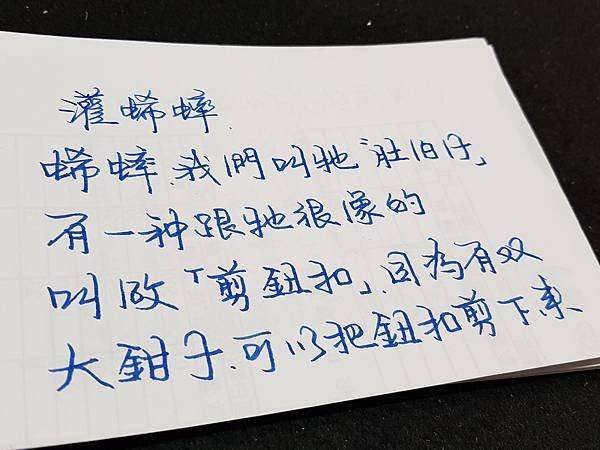 灌蟋蟀.
蟋蟀.我們叫牠「肚伯仔」
有一种跟牠很像的
叫做「剪鈕扣」.因為有双
大鉗子.可以把鈕扣剪下來